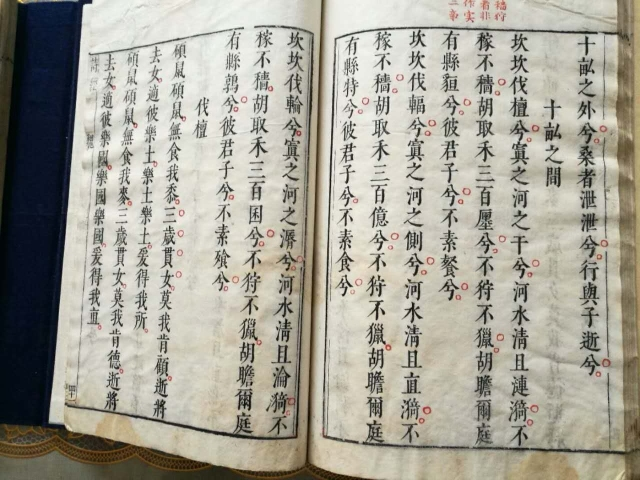 十畝之外兮桑者泄泄兮行與子逝兮
十畝之間
坎坎伐檀兮寘之河之干兮河水清且漣漪不
稼不穡胡取禾三百廛兮不狩不獵胡瞻爾庭
有縣貆兮彼君子兮不素餐兮
坎坎伐輻兮寘之河之側兮河水清且直漪不
稼不穡胡取禾三百億兮不狩不獵胡瞻爾庭
有縣特兮彼君子兮不素食兮
坎坎伐輪兮寘之河之漘兮河水清且淪漪不
稼不穡胡取禾三百囷兮不狩不獵胡瞻爾庭
有縣鶉兮彼君子兮不素飧兮
伐檀
碩鼠碩鼠無食我黍三歲貫女莫我肯顧逝將
去女適彼樂土樂土樂土爰得我所
碩鼠碩鼠無食我麥三歲貫女莫我肯德逝將
去女適彼樂國樂國樂國爰得我直